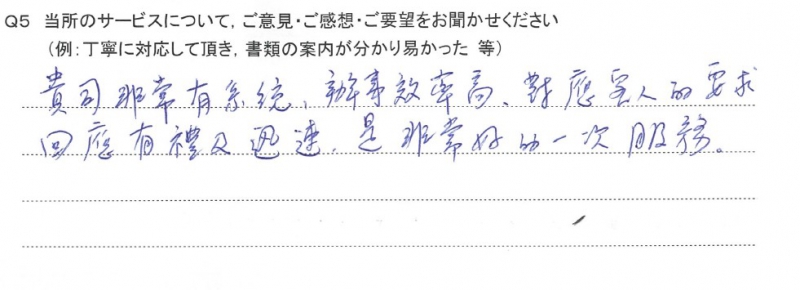 Q5 当所のサービスについて，ご意見・ご感想・ご要望をお聞かせください
（例：丁寧に対応して頂き，書類の案内が分かり易かった 等）
貴司非常有系統、辦事效率高、對應客人的要求
回應有禮及迅速，是非常好的一次服務。